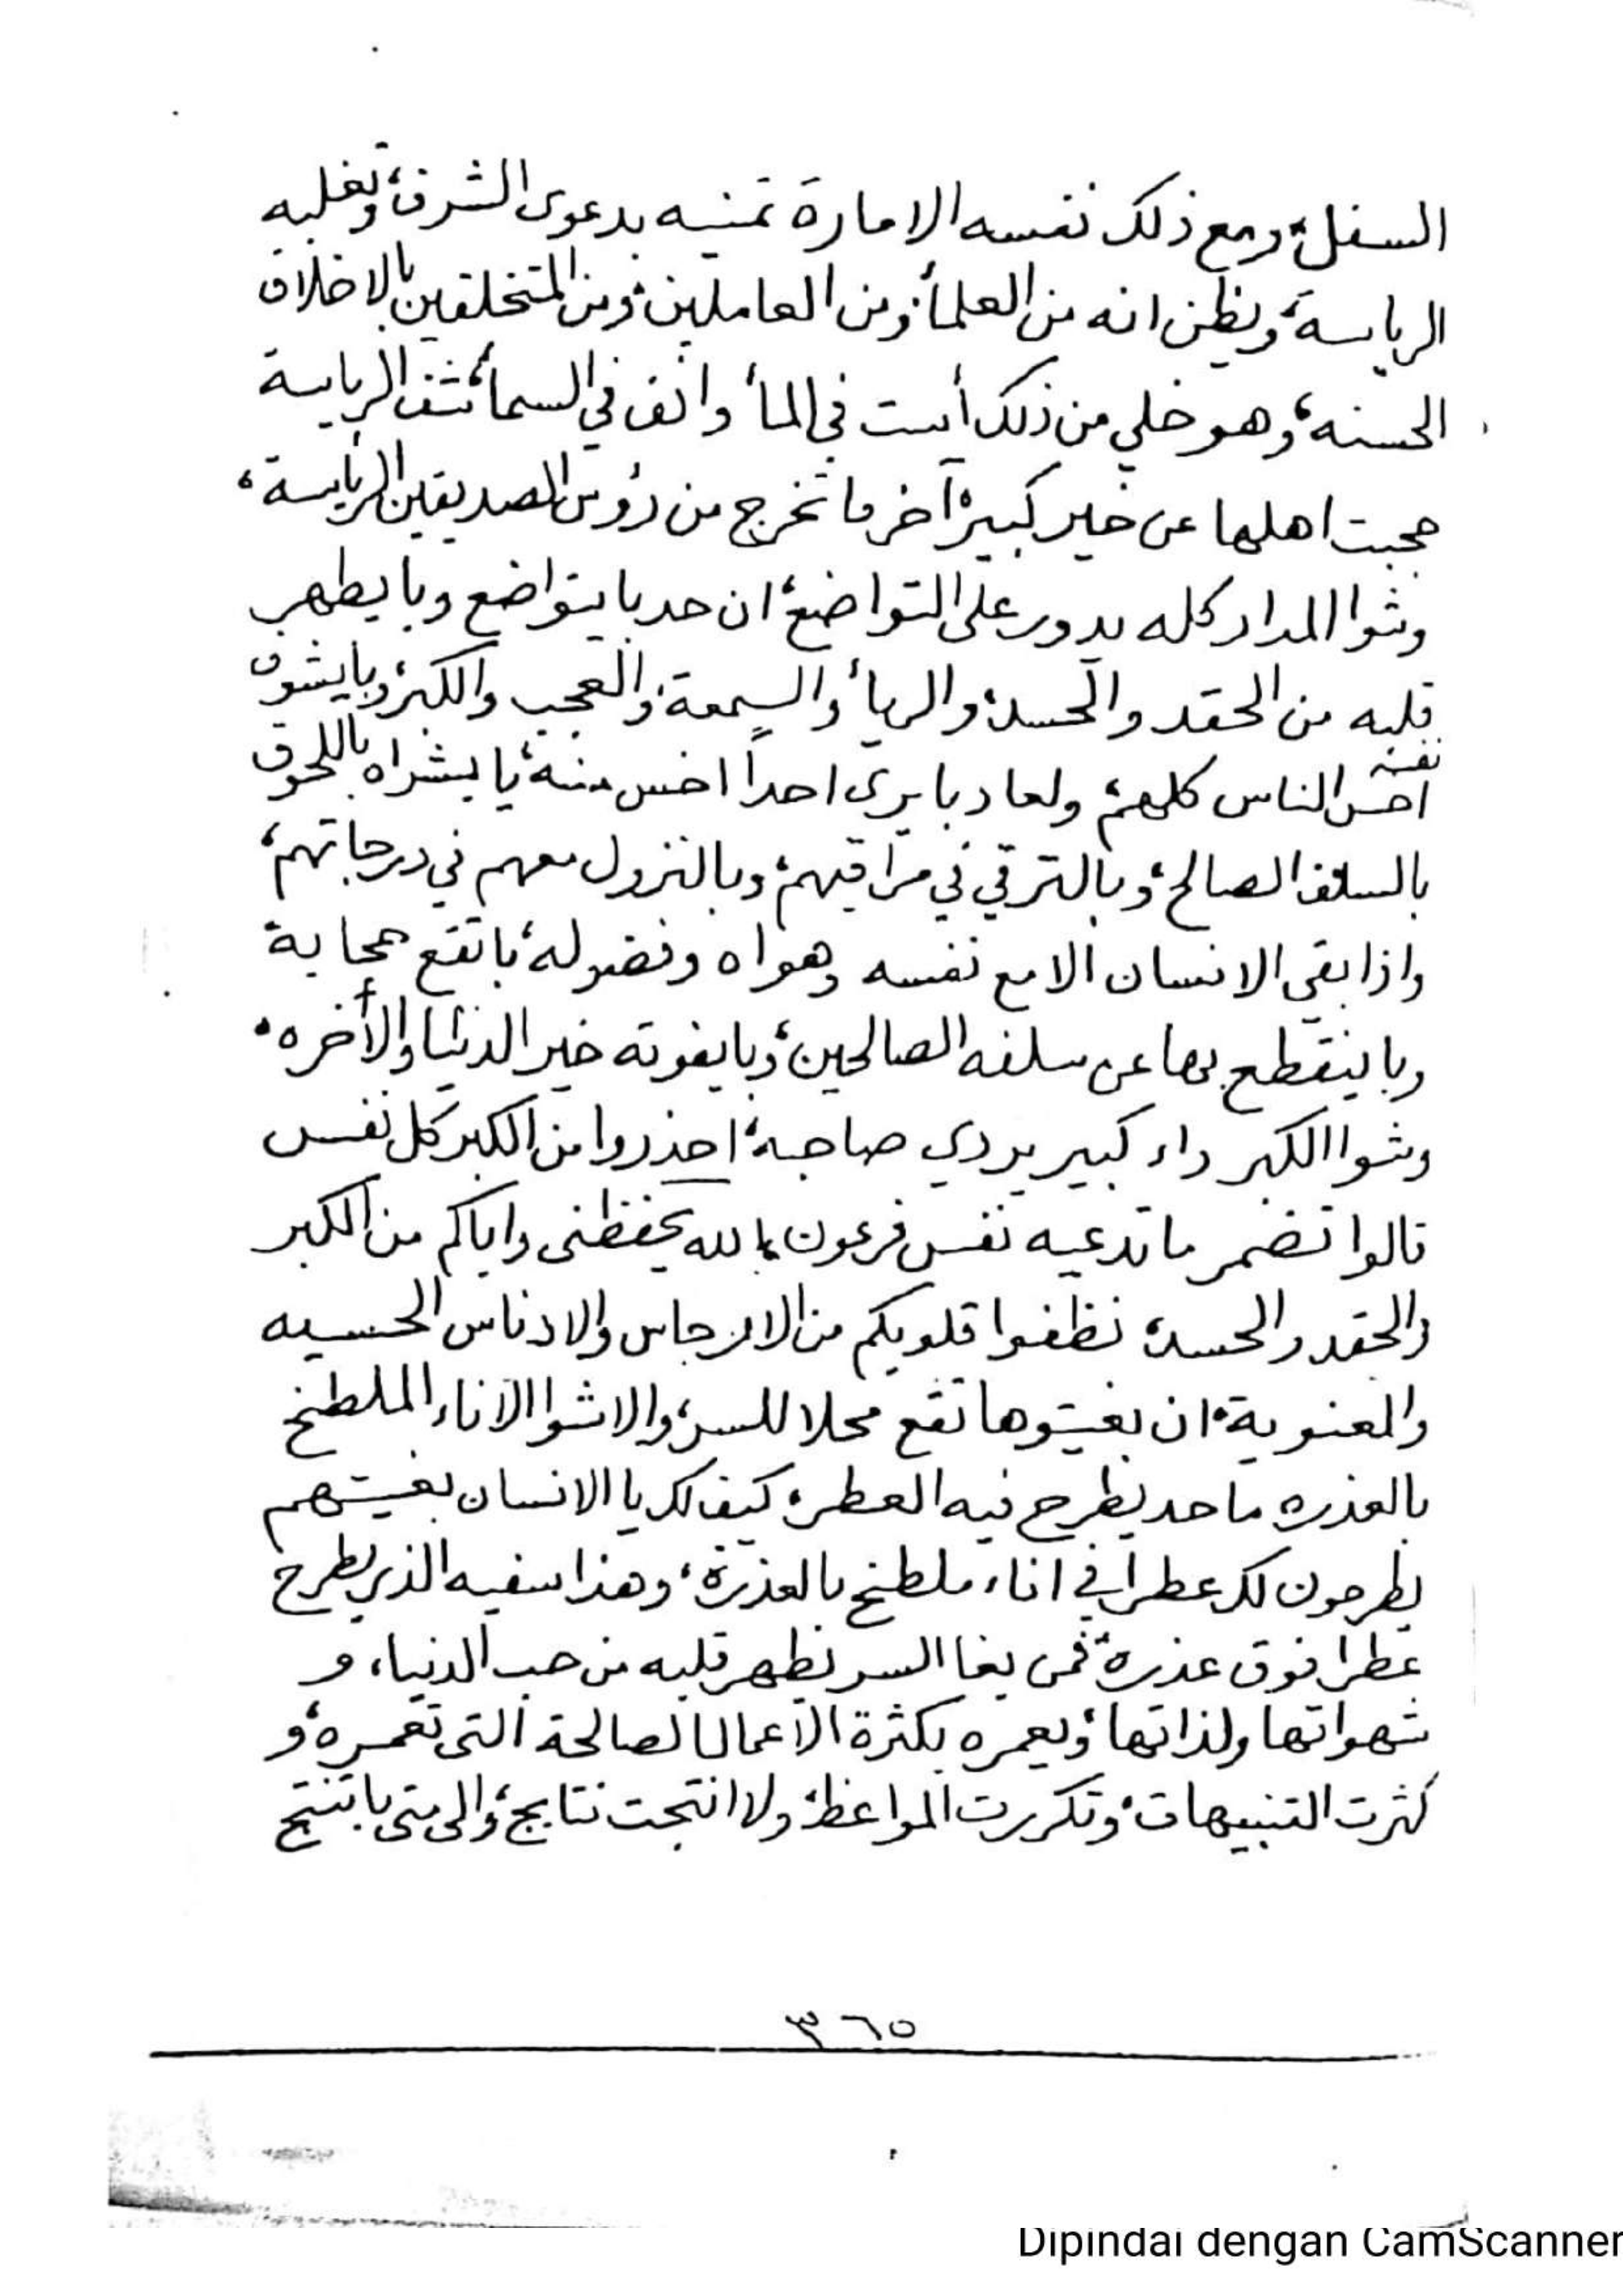 السفل، ومع ذلك نفسه الامارة تمنيه بدعوى الشرف، وتغلبه
الرياسة، ويظن انه من العلماء، ومن العاملين، ومن المتخلقين بالاخلاق
الحسنه، وهو خلي من ذلك أست في الماء وانف في السماء، شف الرياسة
حجبت اهلها عن خير كبير، آخر ما تخرج من رؤس الصديقين الرئاسة،
وشوا المدار كله يدور على التواضع، ان حد با يتواضع وبا يطهر
قلبه من الحقد والحسد، والرياء والسمعة، والعجب والكبر، وبا يشوف
نفسه
اخس الناس كلهم، ولعاد با يرى احداً اخس منه، يا بشراه باللحوق
بالسلف الصالح، وبالترقي في مراقيهم، وبالنزول معهم في درجاتهم،
واذا بقي الانسان الا مع نفسه وهواه وفضوله، با تقع حجابة
وبا ينقطع بها عن سلفه الصالحين، وبا يفوته خير الدنيا والأخره،
وشوا الكبر داء كبير يردي صاحبه، احذروا من الكبر كل نفس
قالوا تضمر ما تدعيه نفس فرعون، الله يحفظنى واياكم من الكبر
والحقد والحسد، نظفوا قلوبكم من الارجاس والادناس الحسيه
والمعنوية، ان بغيتوها تقع محلا للسر، والا شوا الآناء الملطخ
بالعذره ما حد يطرح فيه العطر، كيف لك يا الانسان بغيتهم
يطرحون لك عطراً في اناء ملطخ بالعذرة، وهذا سفيه الذي يطرح
عطرا فوق عذرة، فمن بغا السر يطهر قلبه من حب الدنيا، و
شهواتها ولذاتها، ويعمره بكثرة الاعمال الصالحة التى تعمره، و
كثرت التنبيهات، وتكررت المواعظ، ولا انتجت نتايج، والى متى با تنتج
٣٦٥
Dipindai dengan CamScanner